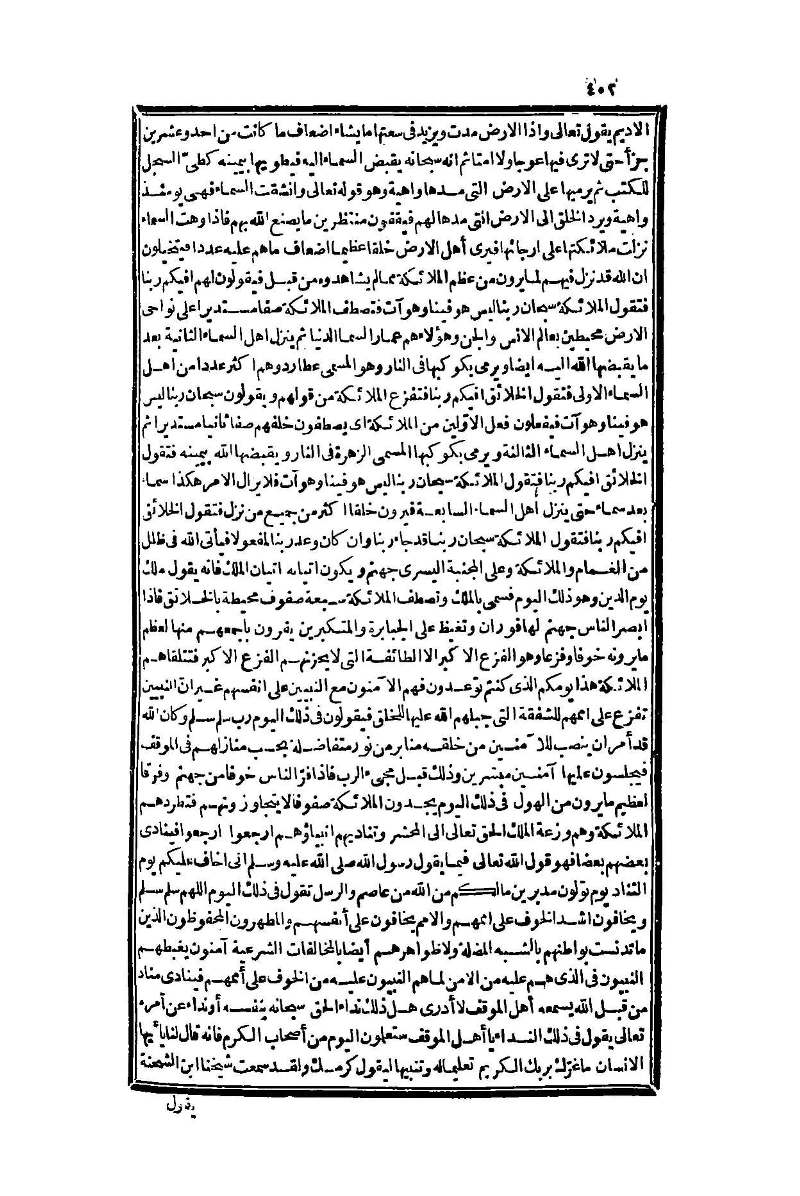 ٤٠٢
الاديم يقول تعالى واذا الارض مدت ويزيد فى سعتها ما يشاء اضعاف ما كانت من احد وعشرين
جزأ حتى لا ترى فيها عوجا ولا امتا ثم انه سبحانه يقبض السماء اليه فيطويها بيمينه كطىّ السجل
للكتب ثم يرميها على الارض التى مدها واهية وهو قوله تعالى وانشقت السماء فهى يومئذ
واهية ويرد الخلق الى الارض التى مدها لهم فيقفون منتظرين ما يصنع الله بهم فاذا وهت السماء
نزلت ملائكتها على ارجائها فيرى أهل الارض خلقا عظيما اضعاف ماهم عليه عددا فيتخيلون
ان الله قد نزل فيهم لما يرون من عظم الملائكة مما لم يشاهدوه من قبل فيقولون لهم افيكم ربنا
فتقول الملائكة سبحان ربنا ليس هو فينا وهو آت فتصطف الملائكة صفا مستديرا على نواحى
الارض محيطين بعالم الانس والجن وهؤلاء هم عمار السما الدنيا ثم ينزل اهل السماء الثانية بعد
ما يقبضها الله اليه ايضا ويرمى بكوكبها فى النار وهو المسمى عطارد وهم اكثر عددا من اهل
السماء الاولى فتقول الخلائق افيكم ربنا فتفزع الملائكة من قولهم ويقولون سبحان ربنا ليس
هو فينا وهو آت فيفعلون فعل الاوّلين من الملائكة اى يصطفون خلفهم صفا ثانيا مستديرا ثم
ينزل اهل السماء الثالثة ويرمى بكوكبها المسمى الزهرة فى النار ويقبضها الله بيمينه فتقول
الخلائق افيكم ربنا فتقول الملائكة سبحان ربنا ليس هو فينا وهو آت فلا يزال الامر هكذا سماء
بعد سماء حتى ينزل أهل السماء السابعة فيرون خلقا اكثر من جميع من نزل فتقول الخلائق
افيكم ربنا فتقول الملائكة سبحان ربنا قد جاء ربنا وان كان وعد ربنا لمفعولا فيأتى الله فى ظلل
من الغمام والملائكة وعلى المجنبة اليسرى جهنم ويكون اتيانه اتيان الملك فانه يقول ملك
يوم الدين وهو ذلك اليوم فسمى بالملك وتصطف الملائكة سبعة صفوف محيطة بالخلائق فاذا
ابصر الناس جهنم لها فوران وتغيظ على الجبابرة والمتكبرين يفرون باجمعهم منها لعظم
ما يرونه خوفا وفزعا وهو الفزع الاكبر الا الطائفة التى لا يحزنهم الفزع الاكبر فتتلقاهم
الملائكة هذا يومكم الذى كنتم توعدون فهم الآمنون مع النبيين على انفسهم غير ان النبيين
تفزع على اممهم للشفقة التى جبلهم الله عليها للخلق فيقولون فى ذلك اليوم رب سلم سلم وكان الله
قد أمر ان ينصب للآمنين من خلقه منابر من نور متفاضلة بحسب منازلهم فى الموقف
فيجلسون عليها آمنين مبشرين وذلك قبل مجىء الرب فاذا فرّ الناس خوفا من جهنم وفرقا
لعظيم ما يرون من الهول فى ذلك اليوم يجدون الملائكة صفوفا لا يتجاوزونهم فتطردهم
الملائكة وهم وزعة الملك الحق تعالى الى المحشر وتناديهم انبياؤهم ارجعوا ارجعوا فينادى
بعضهم بعضا فهو قول الله تعالى فيما يقول رسول الله صلى الله عليه وسلم انى اخاف عليكم يوم
التناد يوم تولون مدبرين مالكم من الله من عاصم والرسل تقول فى ذلك اليوم اللهم سلم سلم
ويخافون اشد الخوف على اممهم والامم يخافون على أنفسهم والمطهرون المحفوظون الذين
ما تدنست بواطنهم بالشبه المضلة ولا ظواهرهم أيضا بالمخالفات الشرعية آمنون يغبطهم
النبيون فى الذى هم عليه من الامن لما هم النبيون عليه من الخوف على أممهم فينادى مناد
من قبل الله يسمعه أهل الموقف لا أدرى هل ذلك نداء الحق سبحانه بنفسه أو نداء عن أمره
تعالى يقول فى ذلك النداء يا أهل الموقف ستعلمون اليوم من أصحاب الكرم فانه قال لنا يا أيها
الانسان ما غرّك بربك الكريم تعليما له وتنبيها ليقول كرمك ولقد سمعت شيخنا ابن الشحنة
يقول